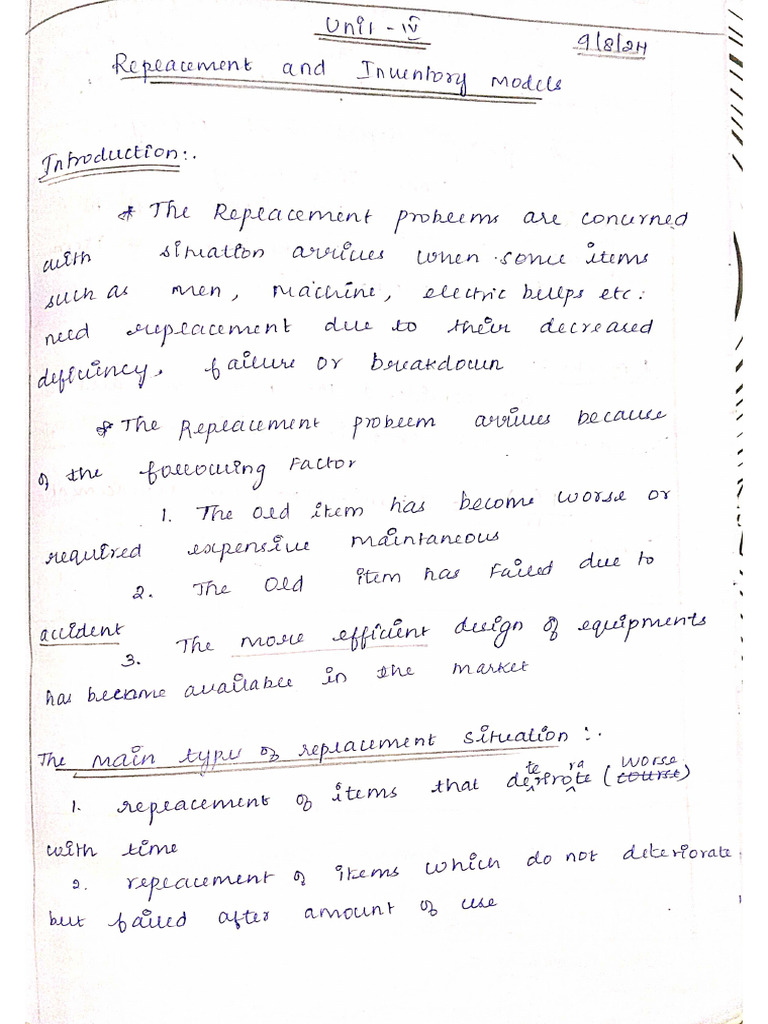 Unit - IV
9/8/24
Repeacement and Inventory models
Introduction:.
* The Repeacement probeems are concurned
with situation arrives when some items
such as men, machine, electric bulps etc:
need repeacement due to their decreased
deficiency, failure or breakdown
* The Repeacement probeem arrives because
of the following Factor
1. The Old item has become worse or
required expensive maintaneous
2. The Old item has Failed due to
accident
3. The more efficient design of equipments
has become available in the market
The main types of repeacement situation :.
1. repeacement of items that deteriorate (course worse)
with time
2. repeacement of items which do not deteriorate
but failed after amount of use